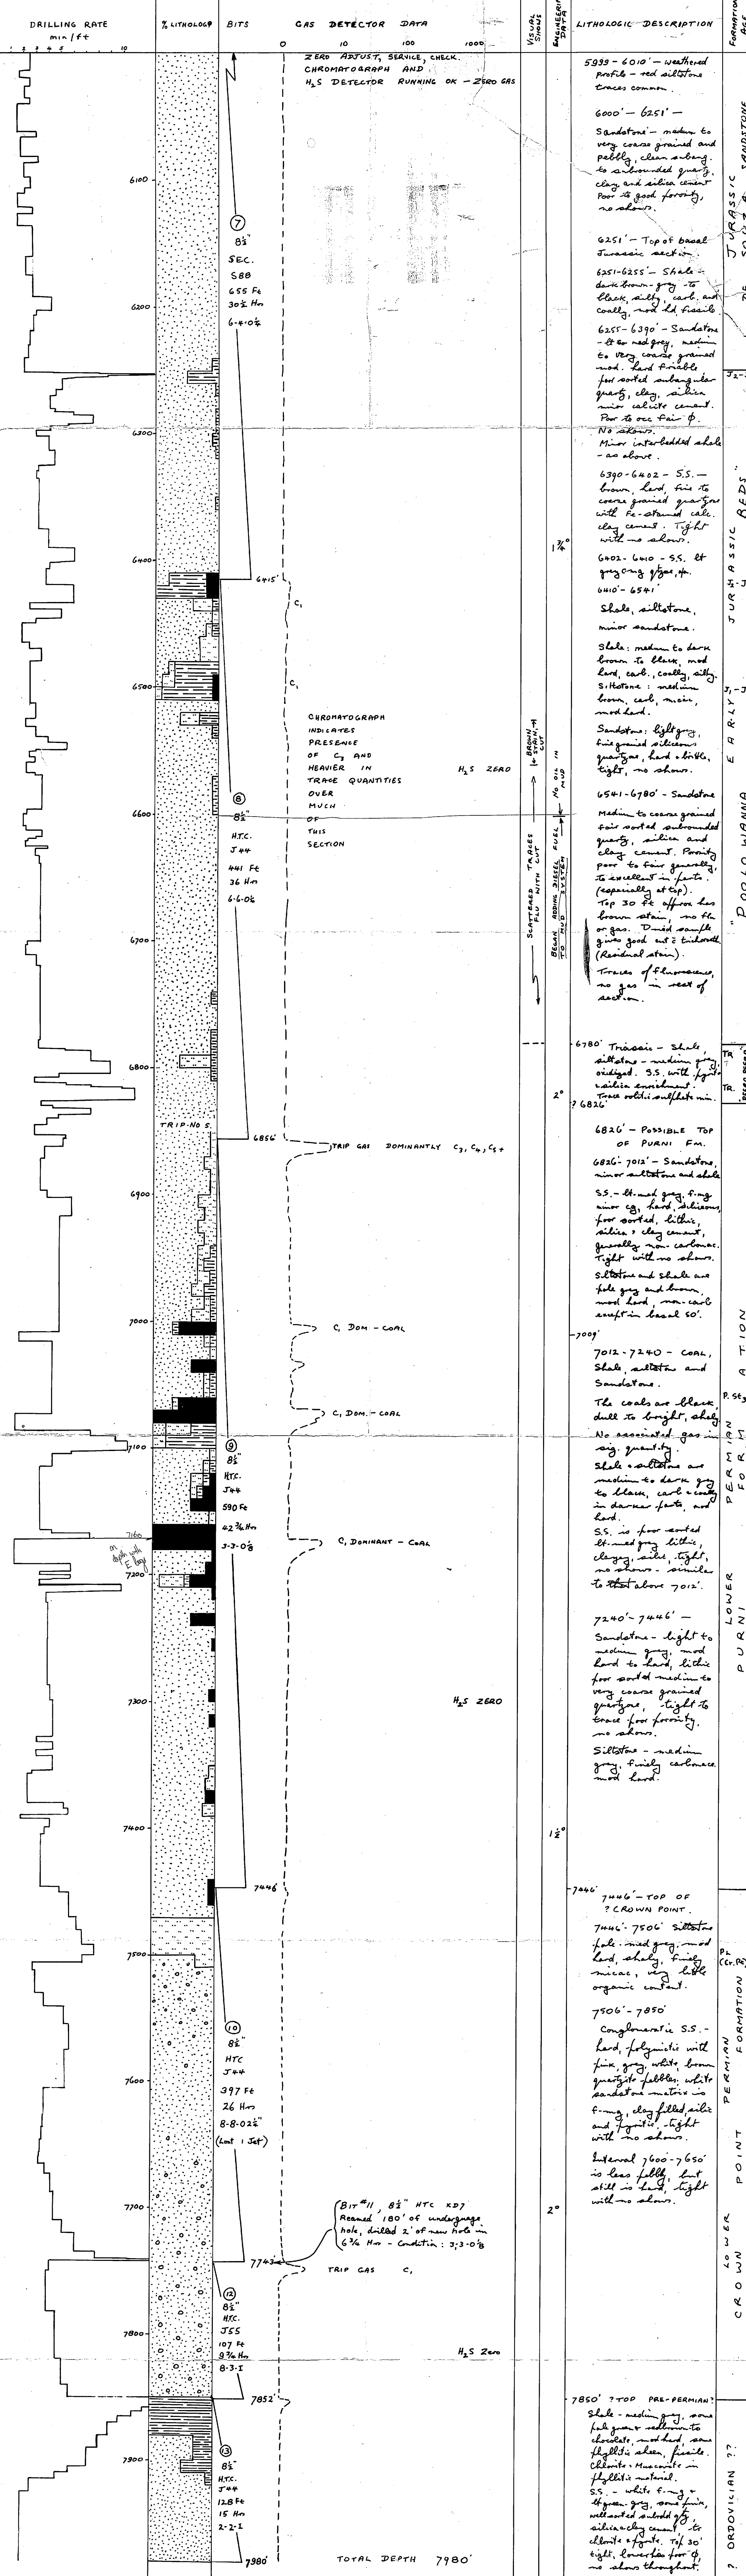 DRILLING RATE
min/ft
% LITHOLOGY
BITS
GAS DETECTOR DATA
VISUAL
SHOWS
ENGINEERING
DATA
LITHOLOGIC DESCRIPTION
FORMATION
AGE
1 2 3 4 5 10
0 10 100 1000
ZERO ADJUST, SERVICE, CHECK.
CHROMATOGRAPH AND
H2S DETECTOR RUNNING OK - ZERO GAS
6100
6200
6300
6400
6500
6600
6700
6800
6900
7000
7100
7160
on
depth with
E log
7200
7300
7400
7500
7600
7700
7800
7900
TRIP NO 5.
7
8½"
SEC.
S88
655 Ft
30½ Hrs
6415'
8
8½"
H.T.C.
J44
441 Ft
36 Hrs
6856'
9
8½"
HTC.
J44
590 Ft
42¾ Hrs
3-3-0⅛
7446'
10
8½"
HTC
J44
397 Ft
26 Hrs
(Lost 1 Jet)
7743'
12
8½"
H.T.C.
J55
107 Ft
9¾ Hrs
8-3-I
7852'
13
8½"
H.T.C.
J44
128 Ft
15 Hrs
2-2-I
7980'
C1
C1
CHROMATOGRAPH
INDICATES
PRESENCE
OF C3 AND
HEAVIER IN
TRACE QUANTITIES
OVER
MUCH
OF
THIS
SECTION
H2S ZERO
TRIP GAS DOMINANTLY C3, C4, C5+
C1 DOM - COAL
C1 DOM. - COAL
C1 DOMINANT - COAL
H2S ZERO
BIT #11, 8½" HTC XD7
Reamed 180' of undergauge
hole, drilled 2' of new hole in
6¾ Hrs - Condition: 3-3-0⅛
TRIP GAS C1
H2S Zero
TOTAL DEPTH 7980'
BROWN
STAIN,
CUT
SCATTERED TRACES
FLU WITH CUT
NO OIL IN
MUD
BEGAN ADDING DIESEL FUEL
TO MUD SYSTEM
1¾°
2°
1½°
2°
5999-6010' - weathered
profile - red siltstone
traces common.
6000' - 6251' -
Sandstone - medium to
very coarse grained and
pebbly, clean subang.
to subrounded quartz,
clay and silica cement
Poor to good porosity,
no shows.
6251' - Top of basal
Jurassic section.
6251-6255' - Shale -
dark brown-grey to
black, silty, carb. and
coally, mod hd fissile.
6255-6390' - Sandstone
- lt to med grey, medium
to very coarse grained
mod. hard friable,
poor sorted subangular
quartz, clay, silica
minor calcite cement.
Poor to occ fair φ.
No shows.
Minor interbedded shale
- as above.
6390-6402 - S.S. -
brown, hard, fine to
coarse grained quartzose
with Fe-stained calc.
clay cement. Tight
with no shows.
6402-6410 - S.S. lt
6410' - 6541'
Shale, siltstone,
minor sandstone.
Shale: medium to dark
brown to black, mod
hard, carb., coally, silty.
Siltstone: medium
brown, carb, micac,
mod hard.
Sandstone: light grey,
fine grained siliceous
quartzose, hard & brittle,
tight, no shows.
6541-6780' - Sandstone
Medium to coarse grained
fair sorted subrounded
quartz, silica and
clay cement. Porosity
poor to fair generally,
to excellent in parts.
(especially at top).
Top 30 ft approx has
brown stain, no flu
or gas. Dried sample
gives good cut c̄ trichoroeth
(Residual stain).
Traces of fluorescence,
no gas in rest of
section.
6780' Triassic - Shale,
siltstone - medium grey,
oxidized. S.S. with pyrite
& silica enrichment.
?6826'
6826' - POSSIBLE TOP
OF PURNI FM.
6826-7012' - Sandstone,
minor siltstone and shale
S.S. - lt-med grey, f-mg
minor cg, hard, siliceous,
poor sorted, lithic,
silica & clay cement,
generally non-carbonac.
Tight with no shows.
Siltstone and shale are
pale grey and brown,
mod hard, non-carb
except in basal 50'.
7009'
7012-7240 - COAL,
Shale, siltstone and
Sandstone.
The coals are black,
dull to bright, shaly
No associated gas in
sig. quantity.
Shale & siltstone are
medium to dark grey
to black, carb & coally
in darker parts, mod
hard.
S.S. is poor sorted
lt-med grey lithic,
clayey, silic, tight,
no shows - similar
to that above 7012'.
7240' - 7446' -
Sandstone - light to
medium grey, mod
hard to hard, lithic
poor sorted medium to
very coarse grained
quartzose, tight to
trace poor porosity,
no shows.
Siltstone - medium
grey, finely carbonace.
mod hard.
7446'
7446' - TOP OF
? CROWN POINT.
7446' - 7506' Siltstone
pale-med grey, mod
hard, shaly, finely
micac, very little
organic content.
7506' - 7850'
Conglomeratic S.S. -
hard, polymictic with
pink, grey, white, brown
quartzite pebbles; white
sandstone matrix is
f-mg, clay filled, silic
and pyritic, tight
with no shows.
Interval 7600-7650'
is less pebbly, but
still is hard, tight
with no shows.
7850' ?TOP PRE-PERMIAN?
Shale - medium grey, some
pale green & redbrown to
chocolate, mod hard, some
phyllitic sheen, fissile.
Chlorite & Muscovite in
phyllitic material.
S.S. - white f-mg &
lt green-grey, some pink,
well sorted subrdd qtz,
silica & clay cement, tr
chlorite & pyrite. Top 30'
tight, lower has poor φ,
no shows throughout.
JURASSIC
SANDSTONE
EARLY JURASSIC
"POOLOWANNA REDS"
TR
TR.
LOWER PERMIAN
PURNI FORMATION
LOWER PERMIAN
CROWN POINT FORMATION
? ORDOVICIAN ??